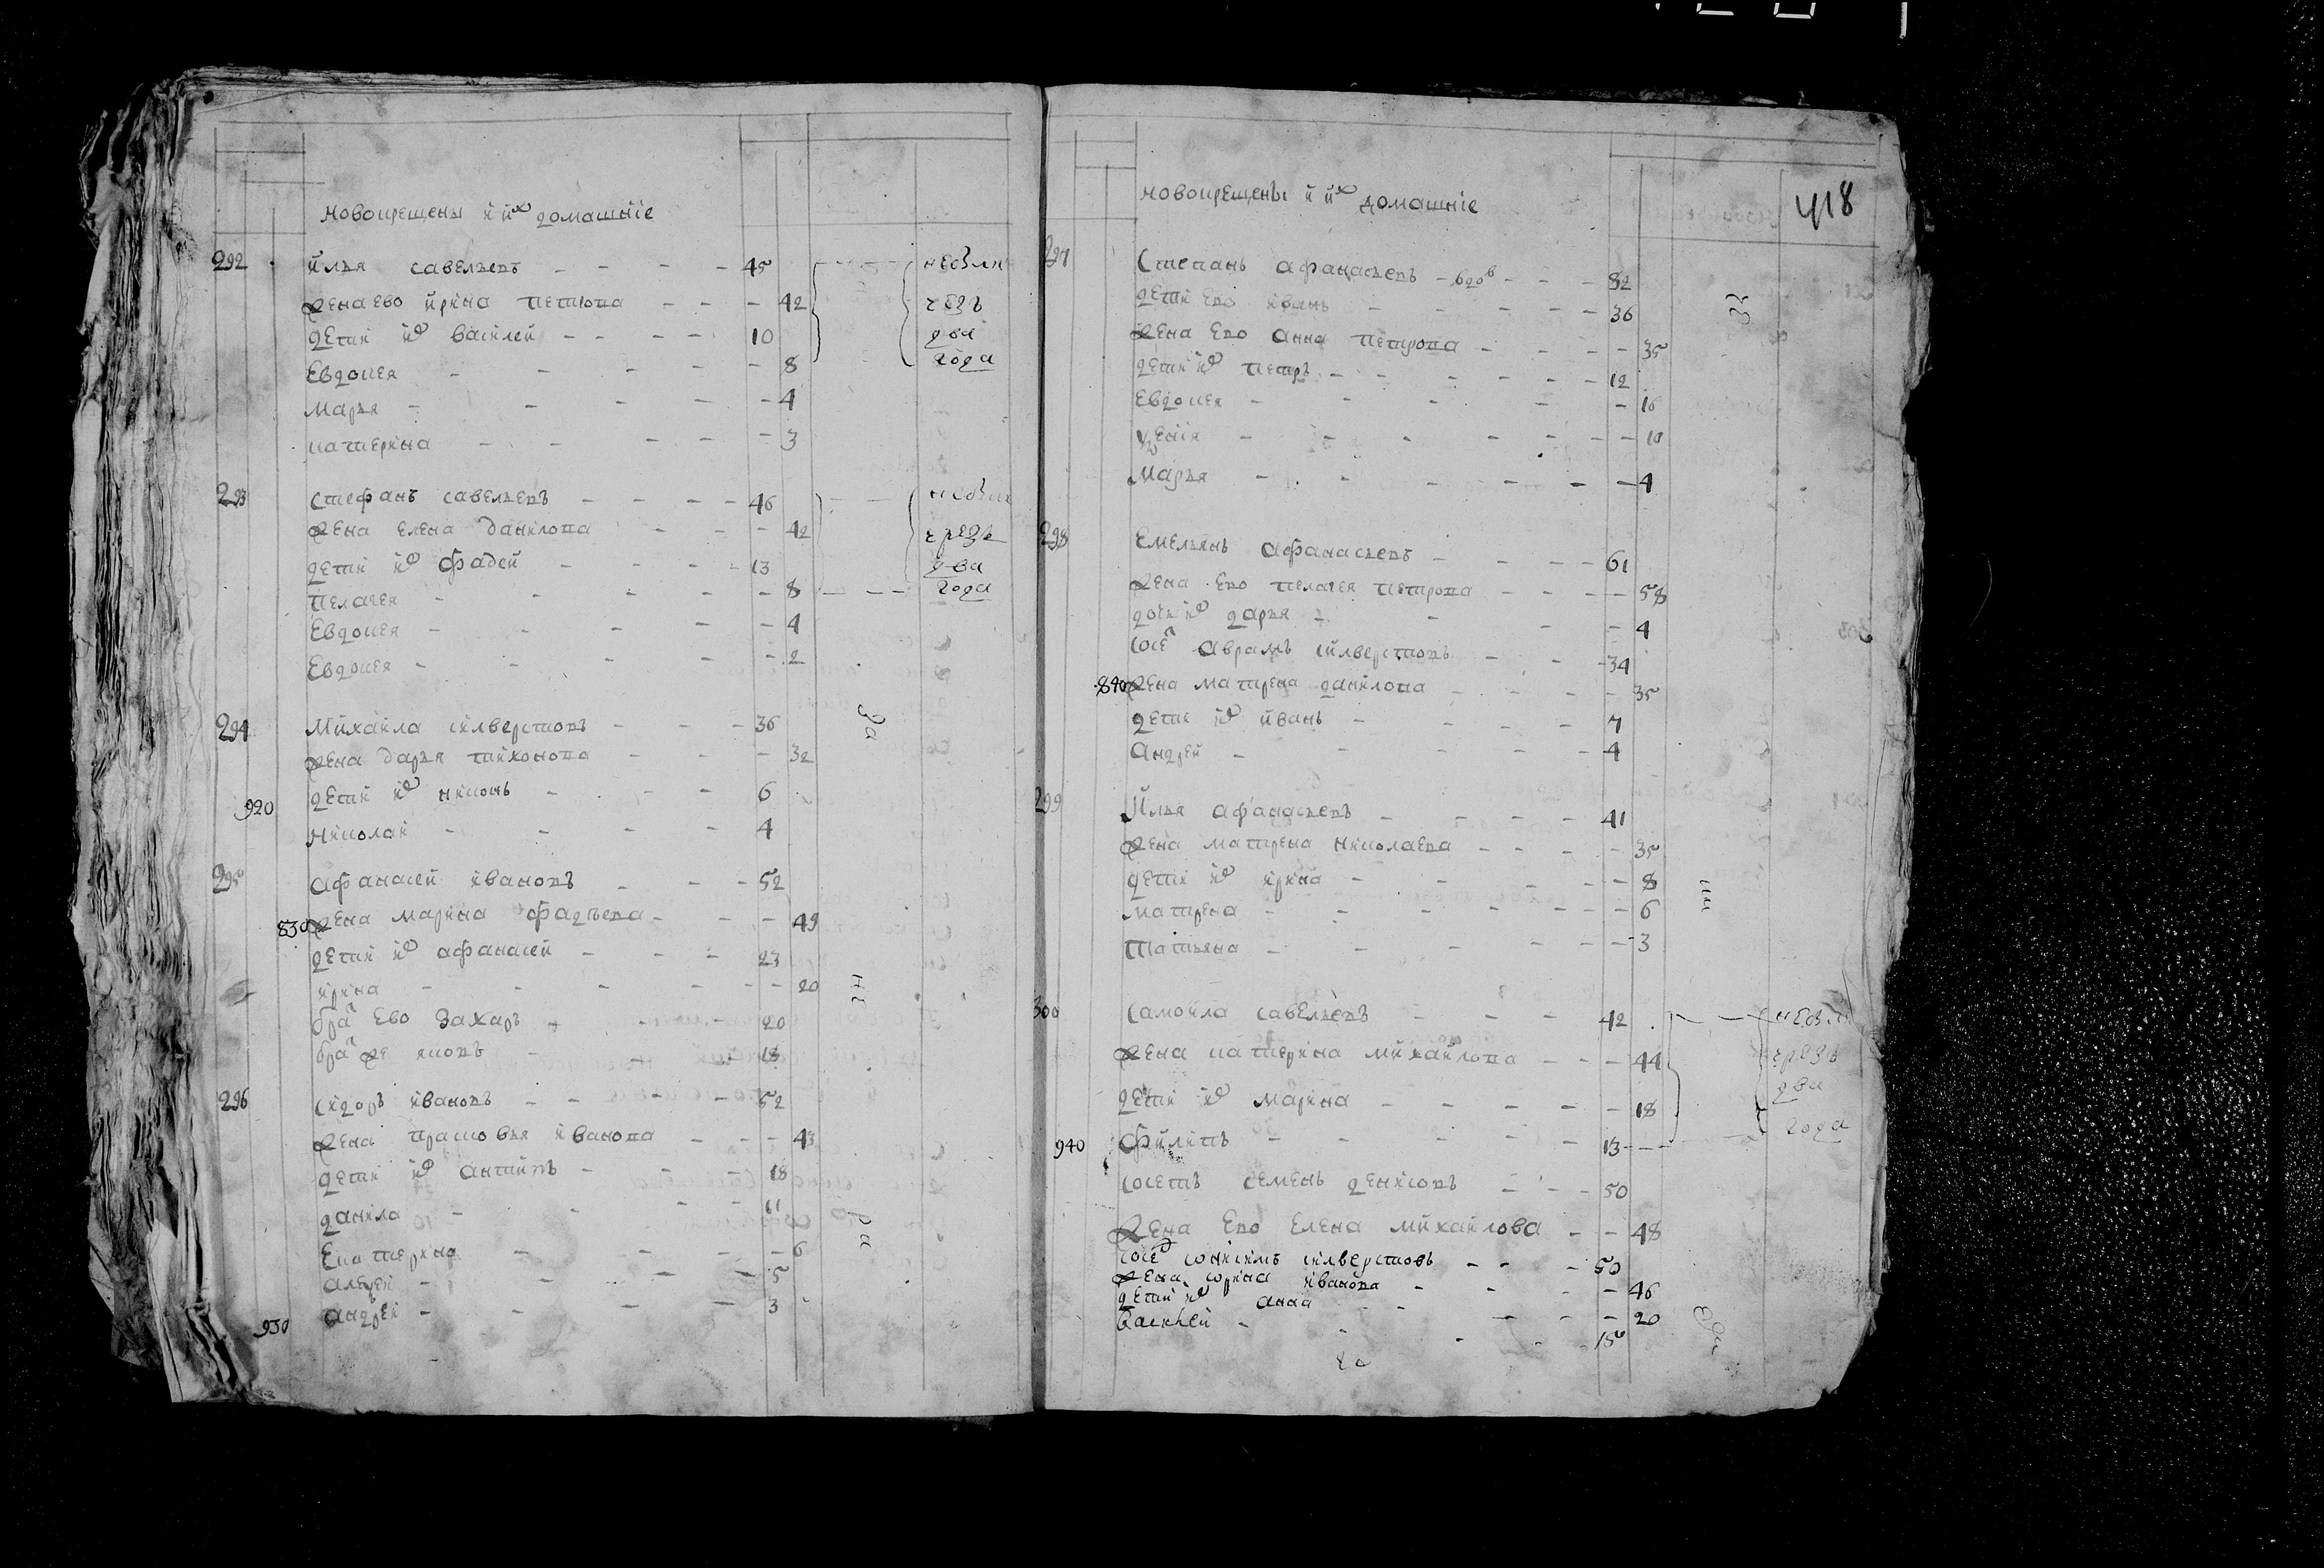 новокрещены и их домашние
292 илья савельевъ - - - - 45
жена ево ирина петрова - - - 42
дети их василей - - - - 10
Евдокея - - - - - 8
марья - - - - - 4
катерина - - - - - 3
чрезъ
два
года
293 стефанъ савельевъ - - - - 46
жена елена данилова - - - 42
дети их фадей - - - - 13
пелагея - - - - - 8
Евдокея - - - - - 4
Евдокея - - - - - 2
чрезъ
два
года
294 михаила силверстовъ - - - 36
жена дарья тихонова - - - 32
920 дети их никонъ - - - - 6
николай - - - - 4
295 афанасей ивановъ - - - 52
830 жена марина фадеева - - - 49
дети их афанасей - - - 23
ирина - - - - - - 20
бра ево захаръ - - - 20
бра же яковъ - - - 18
296 сидоръ ивановъ - - - - 52
жена прасковья иванова - - - 43
дети их антипъ - - - 18
данила - - - 11
Екатерина - - - - 6
алеѯей - - - - 5
930 андрей - - - - 3
за
ра
418
новокрещены и их домашние
297 степанъ афанасьевъ - вдов - - - 82
дети ево иванъ - - - - - 36
жена ево анна петрова - - - - 35
дети их петръ - - - - - - 12
Евдокея - - - - - 16
ѯения - - - - - - - 10
марья - - - - - - 4
298 емельянъ афанасьевъ - - - - 61
жена ево пелагея петрова - - - - 58
дочь их дарья - - - - 4
сосе аврамъ силверстовъ - - - 34
840 жена матрена данилова - - - - 35
дети их иванъ - - - - 7
андрей - - - - - 4
299 Илья афанасьевъ - - - - 41
жена матрена николаева - - - - 35
дети их ирина - - - - - 8
матрена - - - - - - - 6
татьяна - - - - - - 3
300 самойла савельевъ - - - 42
жена катерина михайлова - - - 44
дети их марина - - - - - 18
940 филипъ - - - - - 13
чрезъ
два
года
соседъ семенъ денисовъ - - - 50
жена ево елена михайлова - - 48
сосе ѡнисимъ силверстовъ - - - 50
жена ѡрина иванова - - - 46
дети их анна - - - - - 20
василей - - - - - 15